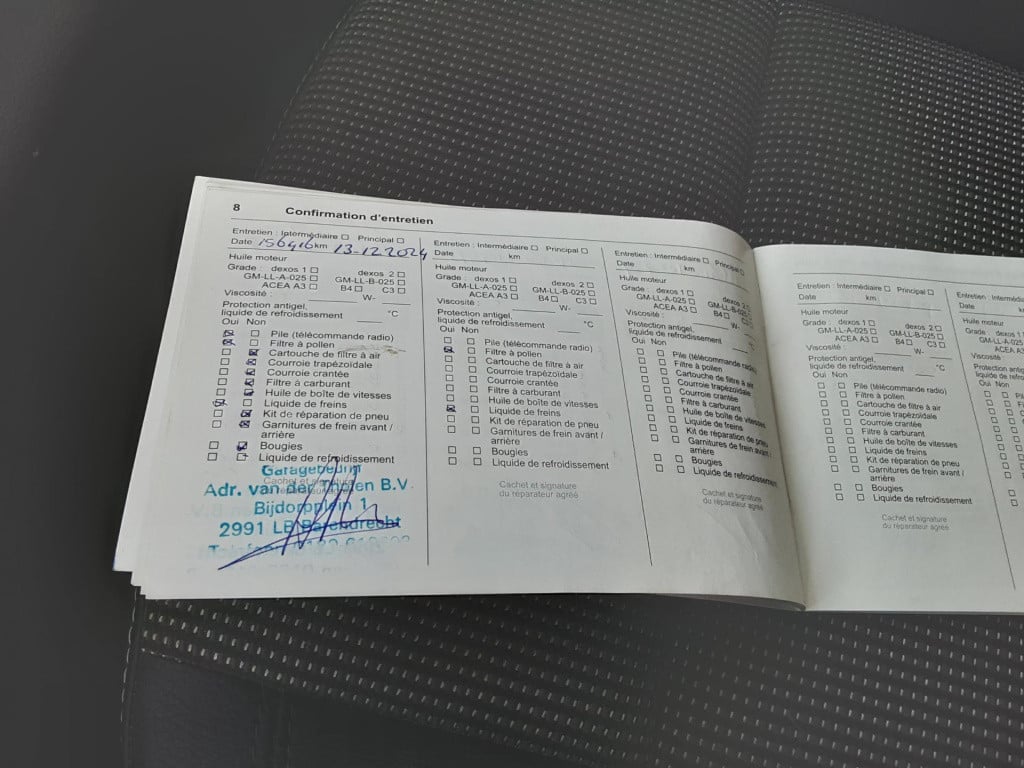 8 Confirmation d'entretien
Entretien : Intermédiaire ☐ Principal ☐
Date 156416 km 13-12 2024
Huile moteur
Grade : dexos 1 ☐ dexos 2 ☐
GM-LL-A-025 ☐ GM-LL-B-025 ☐
ACEA A3 ☐ B4 ☐ C3 ☐
Viscosité : W-
Protection antigel,
liquide de refroidissement °C
Oui Non
Pile (télécommande radio)
Filtre à pollen
Cartouche de filtre à air
Courroie trapézoïdale
Courroie crantée
Filtre à carburant
Huile de boîte de vitesses
Liquide de freins
Kit de réparation de pneu
Garnitures de frein avant /
arrière
Bougies
Liquide de refroidissement
Garagebedrijf
Cachet et signature
du réparateur agréé
Adr. van der Tholen B.V.
Bijdorpplein 1
2991 LB Barendrecht
Entretien : Intermédiaire ☐ Principal ☐
Date km
Huile moteur
Grade : dexos 1 ☐ dexos 2 ☐
GM-LL-A-025 ☐ GM-LL-B-025 ☐
ACEA A3 ☐ B4 ☐ C3 ☐
Viscosité : W-
Protection antigel,
liquide de refroidissement °C
Oui Non
Pile (télécommande radio)
Filtre à pollen
Cartouche de filtre à air
Courroie trapézoïdale
Courroie crantée
Filtre à carburant
Huile de boîte de vitesses
Liquide de freins
Kit de réparation de pneu
Garnitures de frein avant /
arrière
Bougies
Liquide de refroidissement
Cachet et signature
du réparateur agréé
Entretien : Intermédiaire ☐ Principal
Date km
Huile moteur
Grade : dexos 1 ☐ dexos 2
GM-LL-A-025 ☐ GM-LL-B-025
ACEA A3 ☐ B4 ☐ C3
Viscosité : W-
Protection antigel,
liquide de refroidissement
Oui Non
Pile (télécommande radio)
Filtre à pollen
Cartouche de filtre à air
Courroie trapézoïdale
Courroie crantée
Filtre à carburant
Huile de boîte de vitesses
Liquide de freins
Kit de réparation de pneu
Garnitures de frein avant /
arrière
Bougies
Liquide de refroidissement
Cachet et signature
du réparateur agréé
Entretien : Intermédiaire ☐ Principal ☐
Date km
Huile moteur
Grade : dexos 1 ☐ dexos 2 ☐
GM-LL-A-025 ☐ GM-LL-B-025 ☐
ACEA A3 ☐ B4 ☐ C3 ☐
Viscosité : W-
Protection antigel,
liquide de refroidissement °C
Oui Non
Pile (télécommande radio)
Filtre à pollen
Cartouche de filtre à air
Courroie trapézoïdale
Courroie crantée
Filtre à carburant
Huile de boîte de vitesses
Liquide de freins
Kit de réparation de pneu
Garnitures de frein avant /
arrière
Bougies
Liquide de refroidissement
Cachet et signature
du réparateur agréé
Entretien : Interm
Date
Huile moteur
Grade : dexos
GM-LL-A-02
ACEA A
Viscosité :
Protection antig
liquide de refro
Oui Non